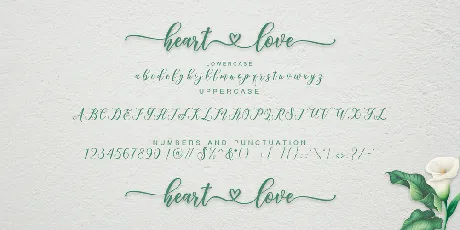 heart love
LOWERCASE
abcdefghijklmnopqrstuvwxyz
UPPERCASE
ABCDEFGHIJKLMNOPQRSTUVWXYZ
NUMBERS AND PUNCTUATION
1234567890
heart love